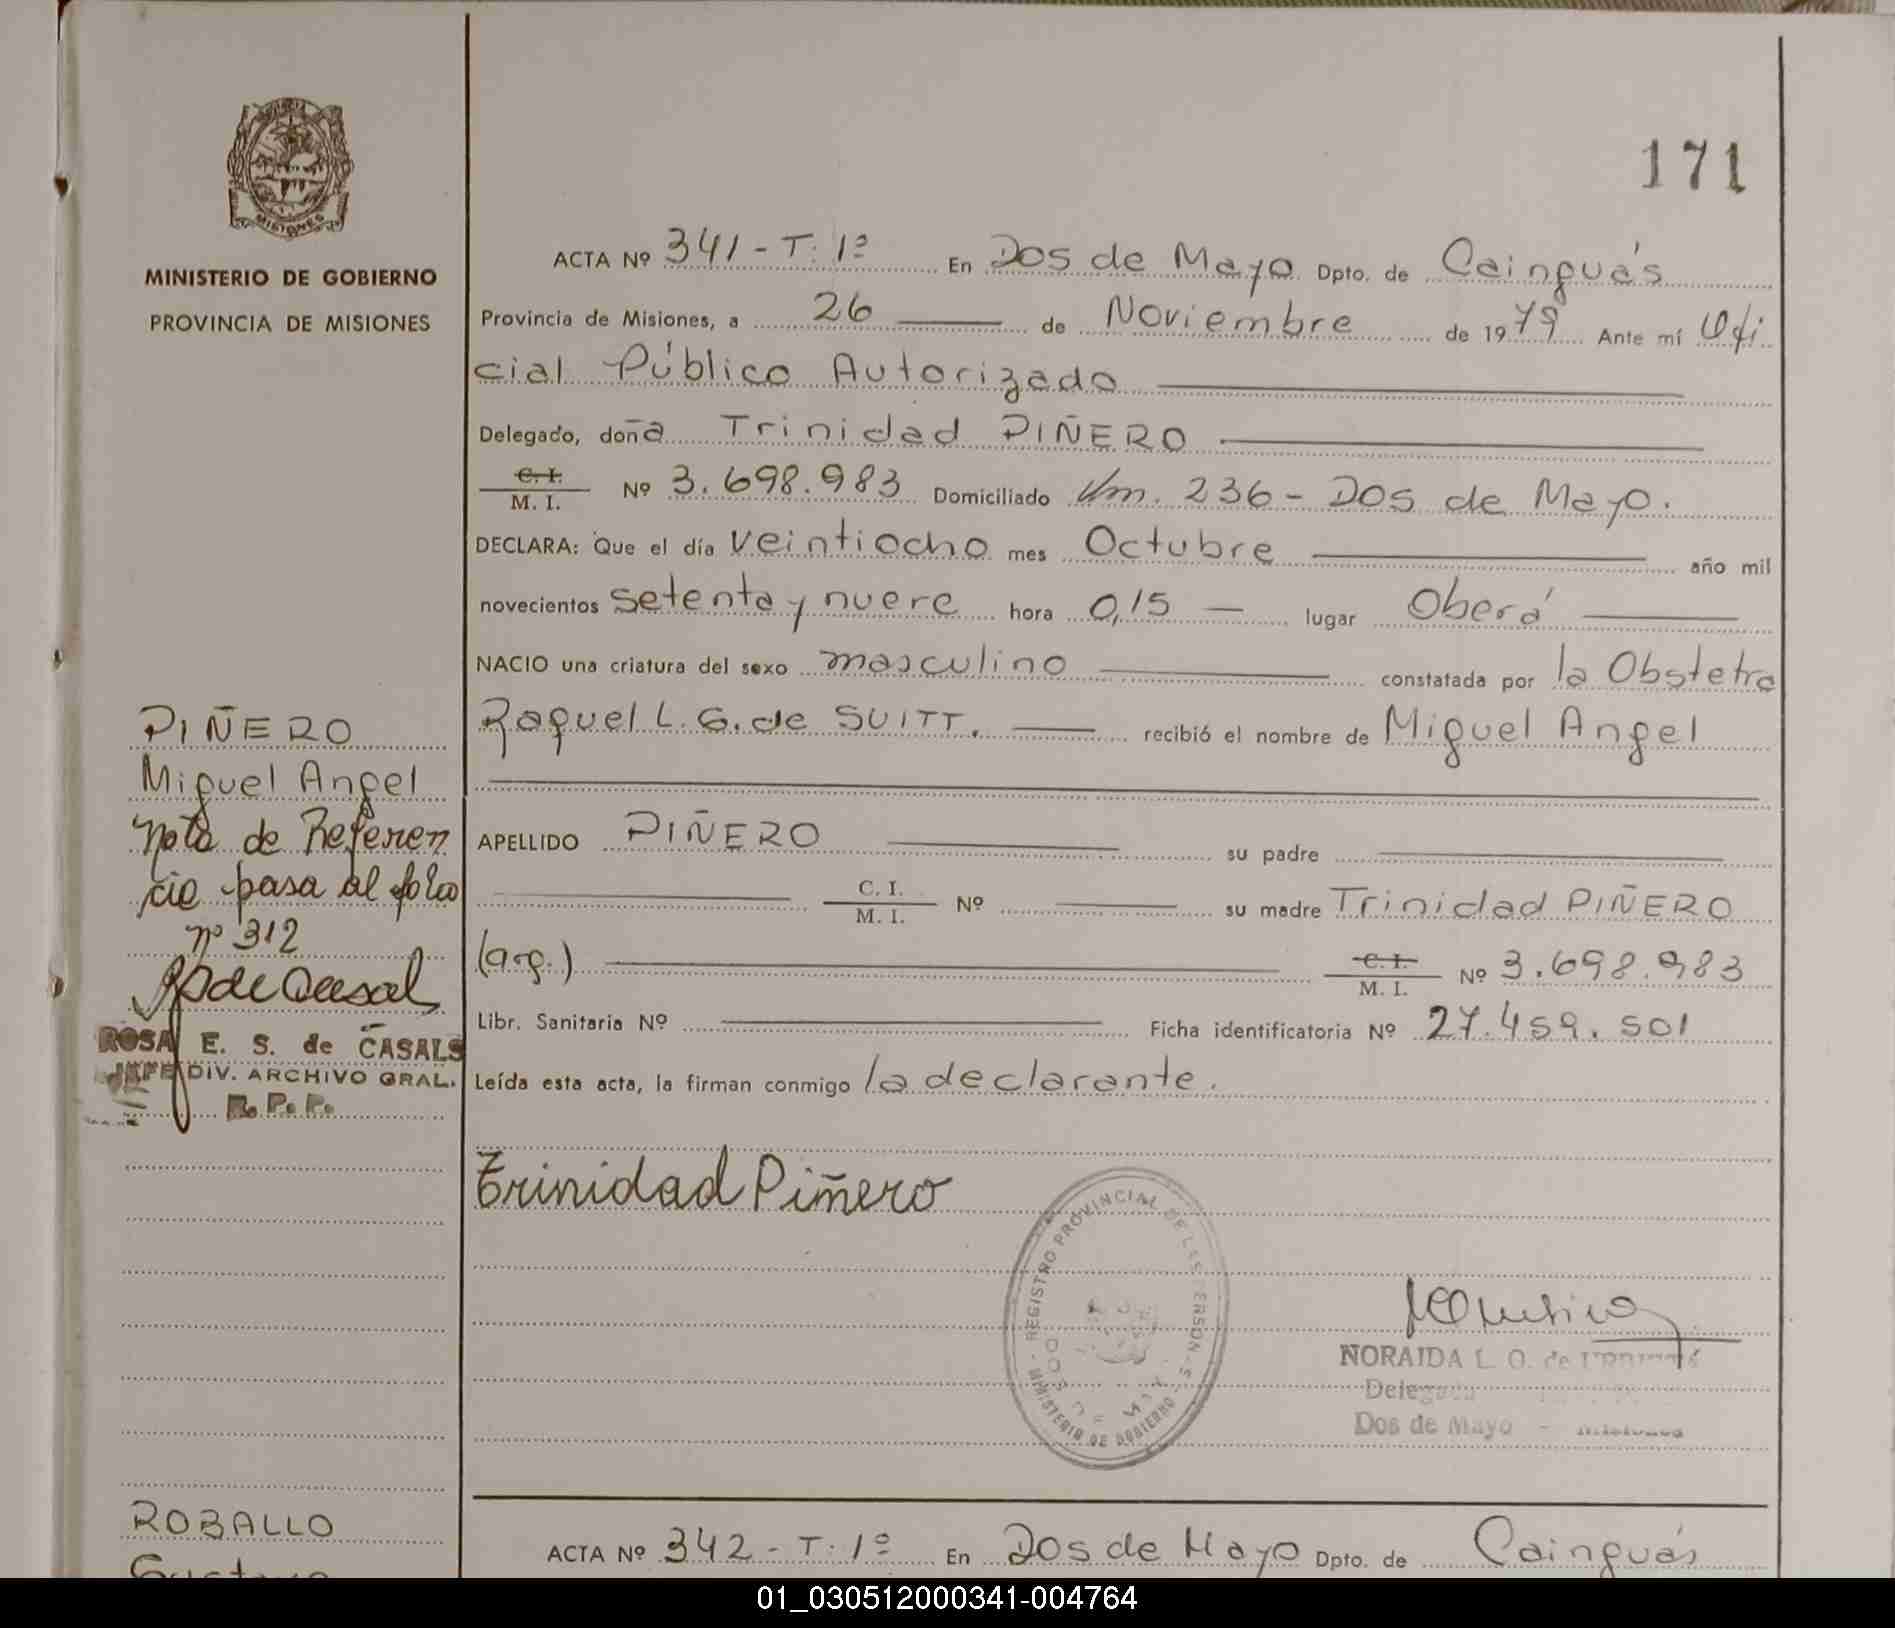 MISIONES
MINISTERIO DE GOBIERNO
PROVINCIA DE MISIONES
171
ACTA Nº 341 - T. 1º En Dos de Mayo Dpto. de Cainguás
Provincia de Misiones, a 26 de Noviembre de 1979 Ante mí Ofi
cial Público Autorizado
Delegado, doña Trinidad PIÑERO
C. I. / M. I. Nº 3.698.983 Domiciliado Km. 236 - Dos de Mayo.
DECLARA: Que el día veintiocho mes Octubre año mil
novecientos setenta y nueve hora 0,15 lugar Oberá
NACIO una criatura del sexo masculino constatada por la Obstetra
Raquel L. G. de SUITT. recibió el nombre de Miguel Angel
APELLIDO PIÑERO su padre
C. I. / M. I. Nº su madre Trinidad PIÑERO
(arg.) C. I. / M. I. Nº 3.698.983
Libr. Sanitaria Nº Ficha identificatoria Nº 27.459.501
Leída esta acta, la firman conmigo la declarante.
Trinidad Piñero
REGISTRO PROVINCIAL DE LAS PERSONAS - MINISTERIO DE GOBIERNO
NORAIDA L. O. de
Delegada
Dos de Mayo - Misiones
PIÑERO
Miguel Angel
Nota de Referen
cia pasa al folio
nº 312
ROSA E. S. de CASALS
JEFE DIV. ARCHIVO GRAL.
R. P. P.
ROBALLO
Gustavo
ACTA Nº 342 - T. 1º En Dos de Mayo Dpto. de Cainguás
01_030512000341-004764